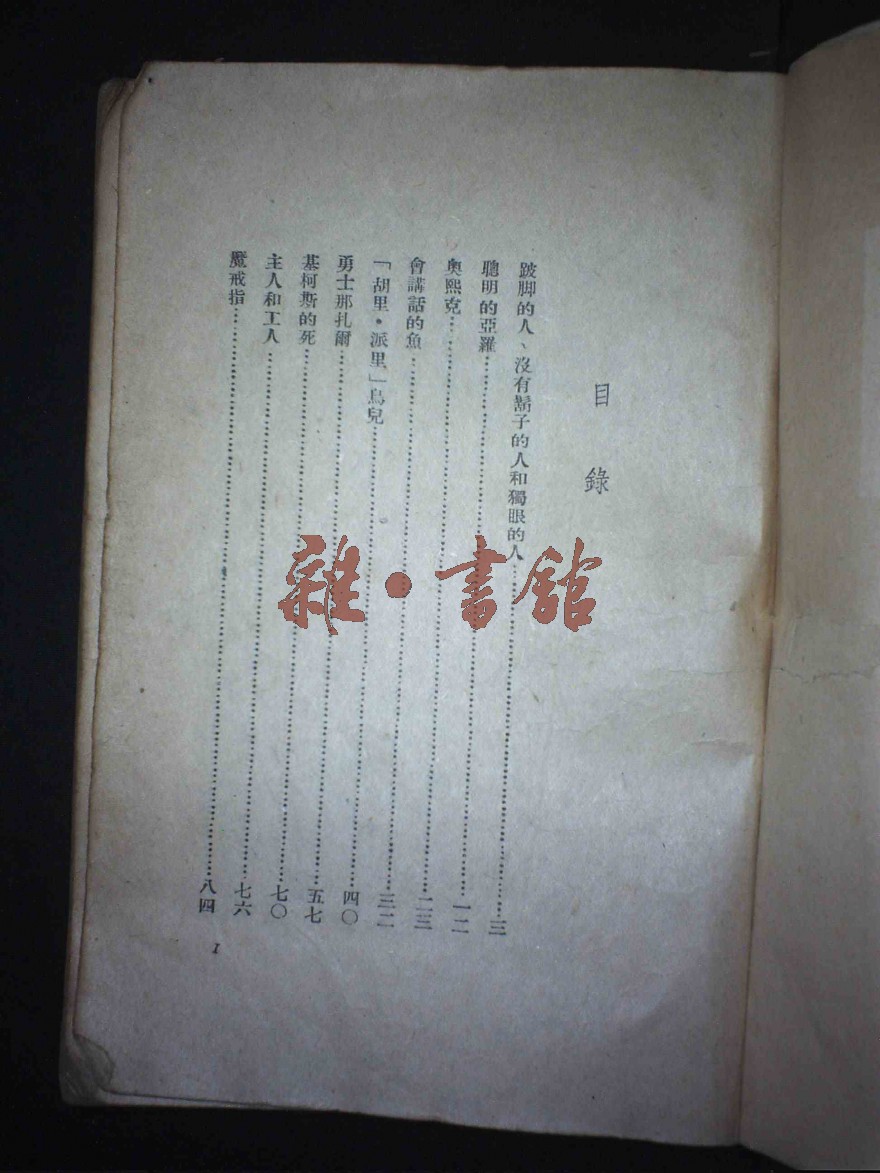 目錄
跛脚的人、沒有鬍子的人和獨眼的人……三
聰明的亞羅……一二
奥熙克……二三
會講話的魚……三二
「胡里·派里」鳥兒……四〇
勇士那扎爾……五七
基柯斯的死……七〇
主人和工人……七六
魔戒指……八四
1
雜·書館